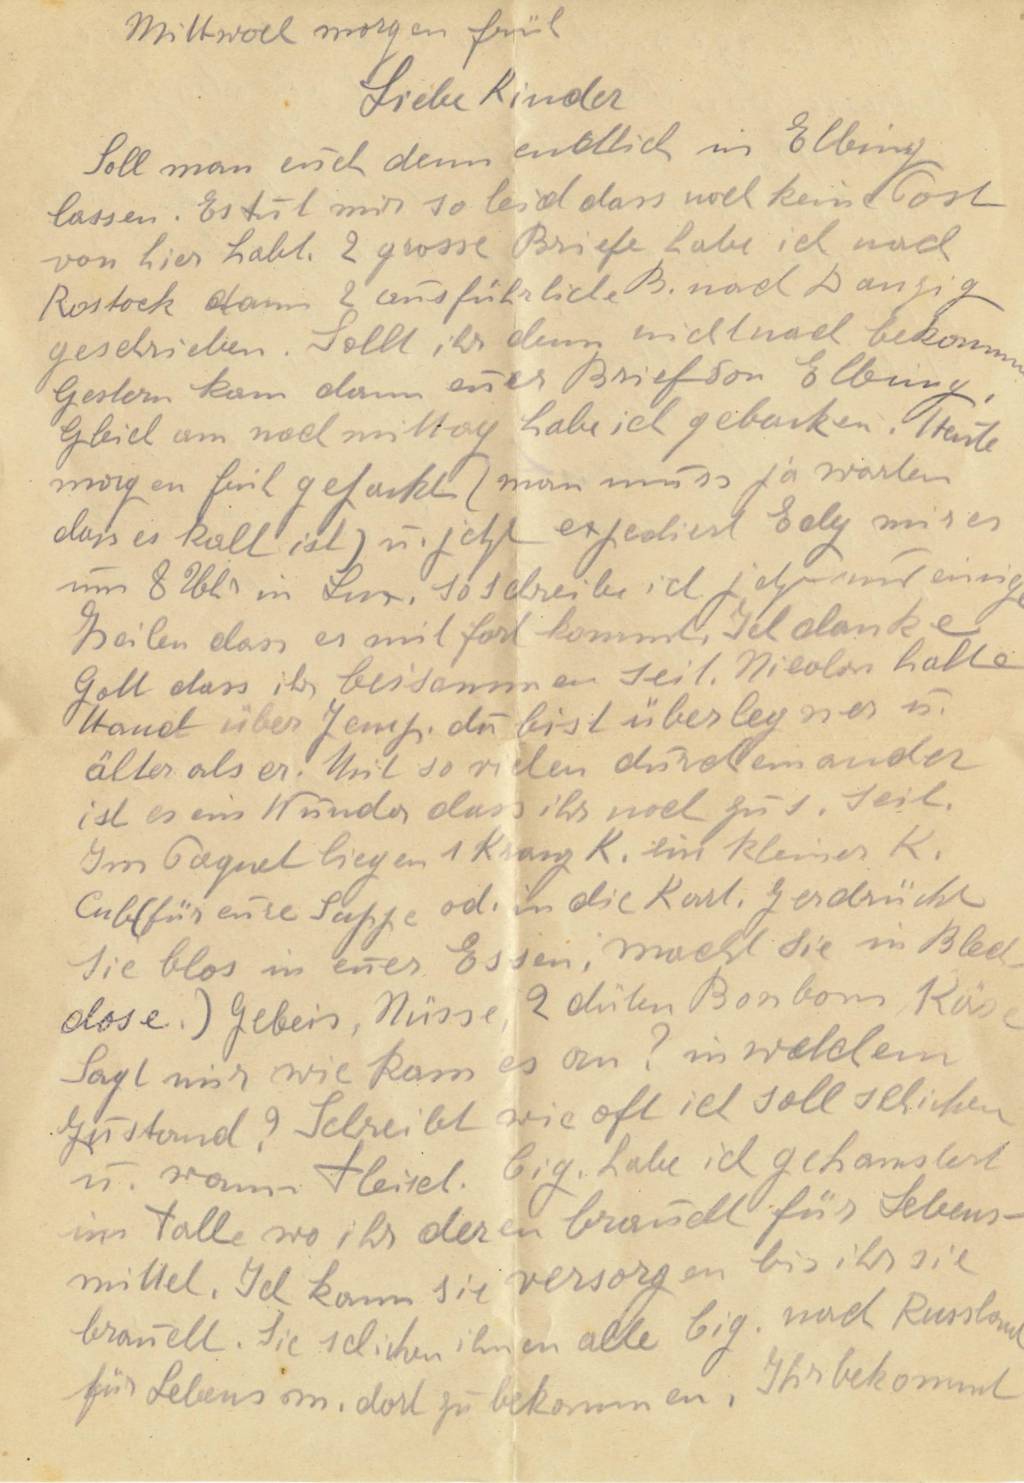 Mittwoch morgen früh
Liebe Kinder
Soll man euch denn endlich in Elbing
lassen. Es tut mir so leid dass noch keine Post
von hier habt. 2 grosse Briefe habe ich nach
Rostock dann 2 ausführliche B. nach Danzig
geschrieben. Sollt ihr denn nicht nach bekommen
Gestern kam dann euer Brief von Elbing,
Gleich am nachmittag habe ich gebacken. Heute
morgen früh gepackt (man muss ja warten
dass es kalt ist) u. jetzt expediert Edy mir es
um 8 Uhr in Lux. so schreibe ich jetzt nur einige
Zeilen dass er mit fort kommt. Ich danke
Gott dass ihr beisammen seit. Nicolas halte
Hand über Jemp. du bist überlegner u.
älter als er. Mit so vielen durcheinander
ist es ein Wunder dass ihr noch zus. seit.
Im Paquet liegen 1 Kranz K. ein kleiner K.
Cub (für eure Suppe od. in die Kart. Zerdrückt
Sie blos in euer Essen, macht Sie in Blech-
dose.) Gebeis, Nüsse, 2 düten Bonbons Käse
Sagt mir wie kam es an? in welchem
Zustand? Schreibt wie oft ich soll schicken
u. wann Fleisch. Cig. habe ich gehamstert
im Falle wo ihr deren braucht für Lebens-
mittel. Ich kann sie versorgen bis ihr sie
braucht. Sie schicken ihnen alle Cig. nach Russland
für Lebens m. dort zu bekommen. Ihr bekommt